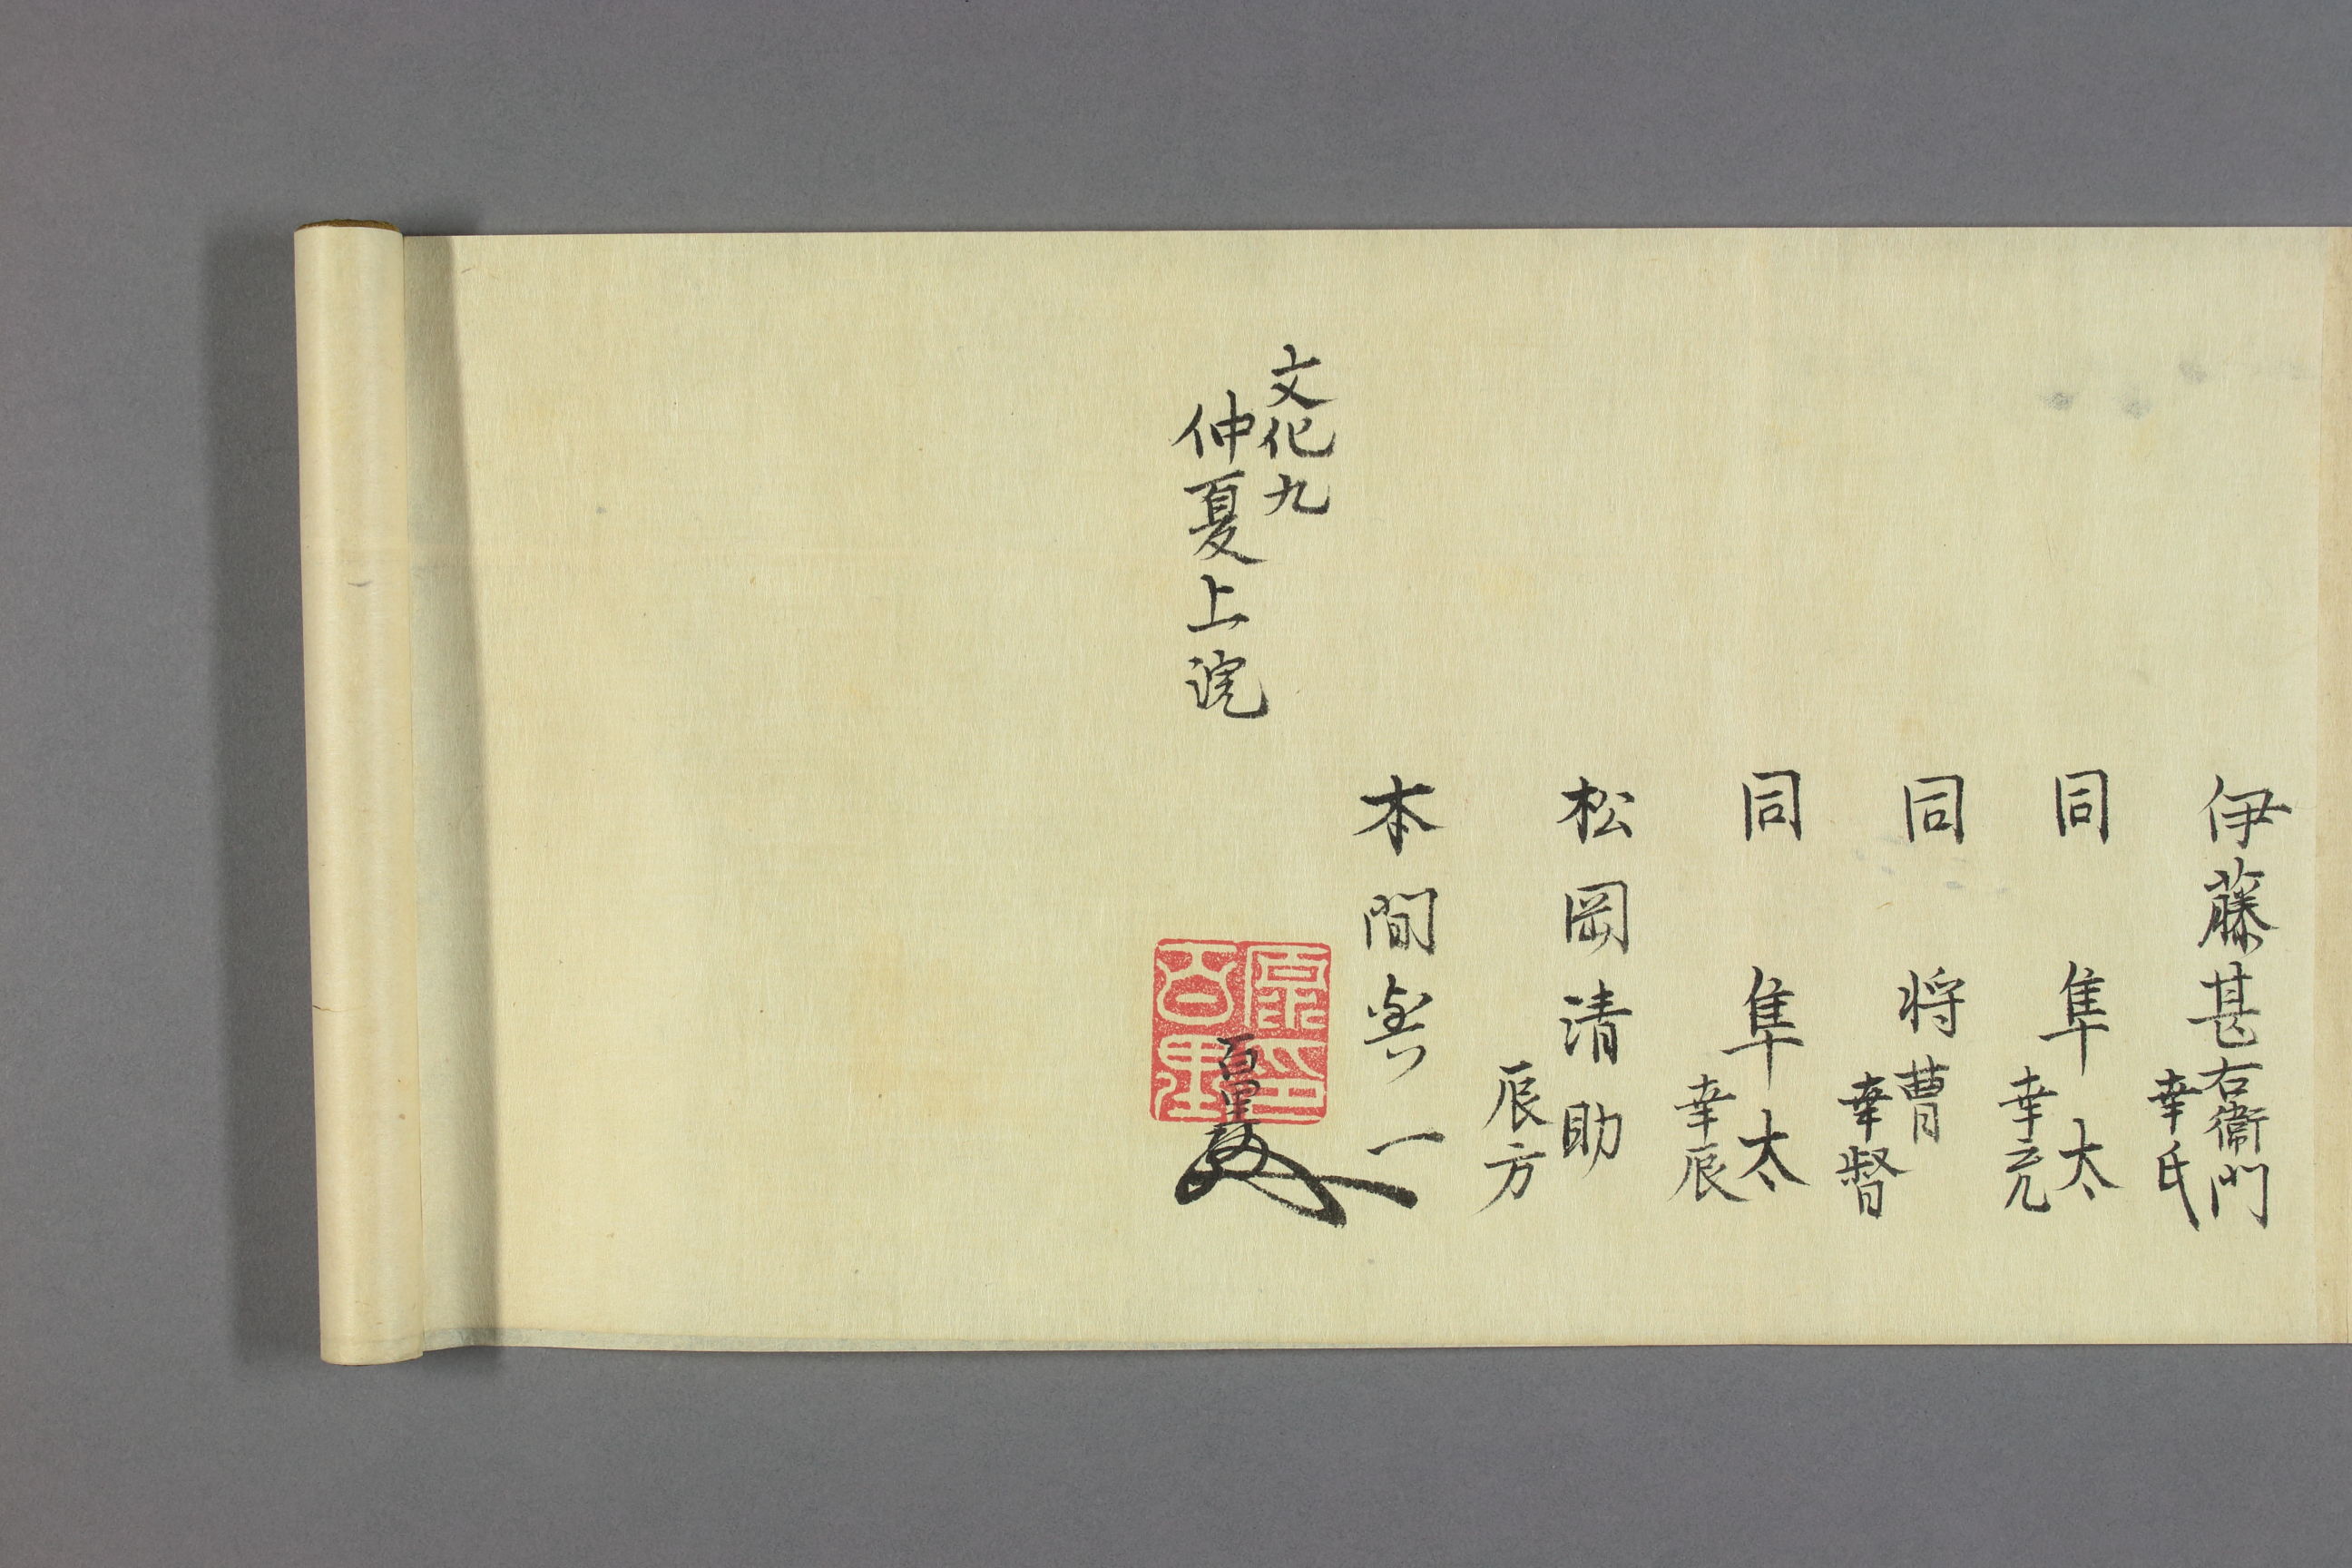 伊藤甚右衛門
幸氏
同 隼太
幸元
同 将曹
幸督
同 隼太
幸辰
松岡清助
辰方
本間與一
百里
文化九
仲夏上浣